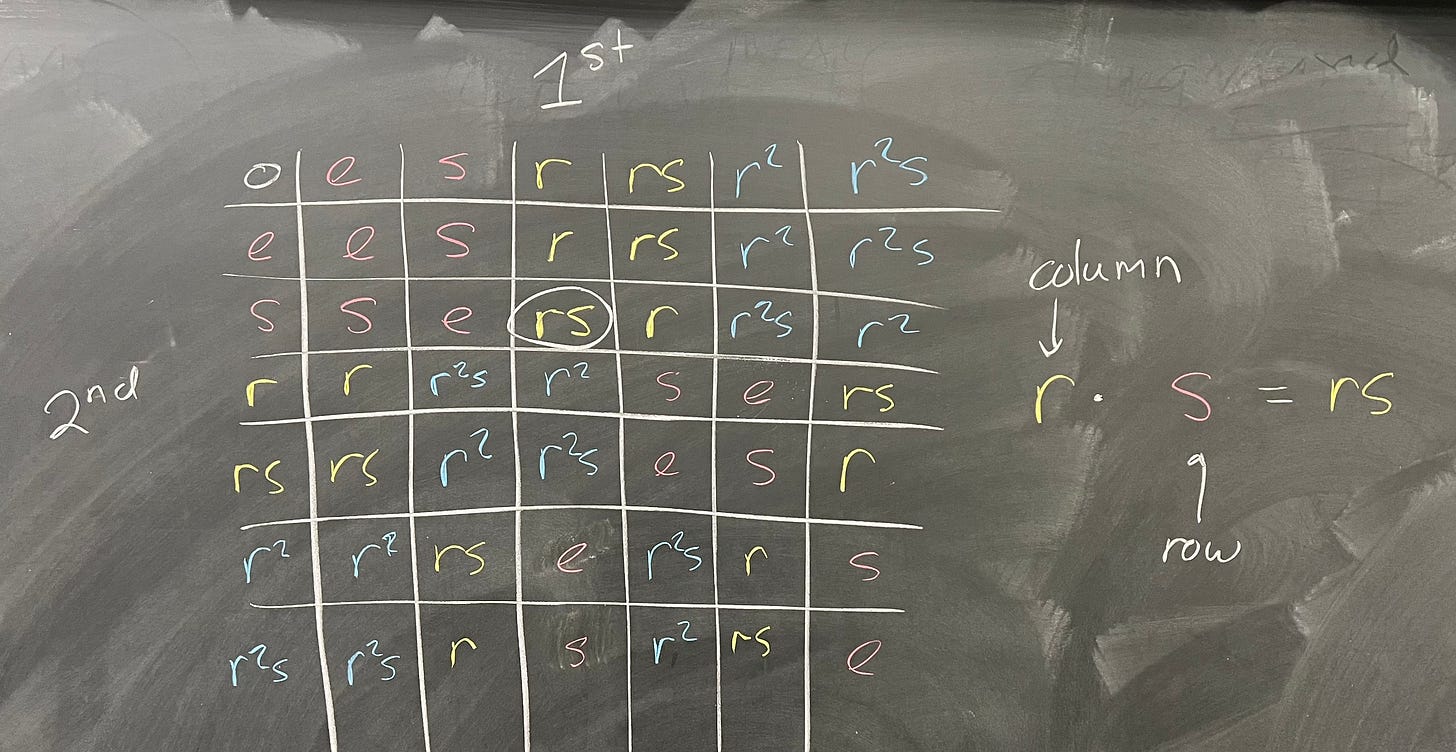 1st
o e s r rs r² r²s
e e s r rs r² r²s
s s e rs r r²s r²
r r r²s r² s e rs
rs rs r² r²s e s r
r² r² rs e r²s r s
r²s r²s r s r² rs e
2nd
column
↓
r · s = rs
↑
row